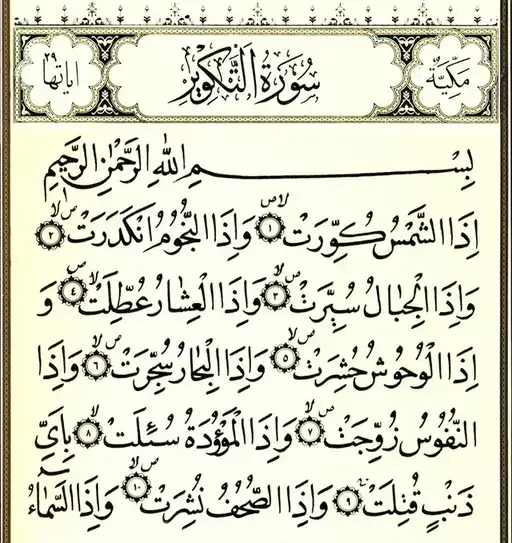 مَكِّيَّةٌ سُورَةُ التَّكْوِيرِ اٰيَاتُهَا ٢٩
بِسْمِ اللّٰهِ الرَّحْمٰنِ الرَّحِيمِ
اِذَا الشَّمْسُ كُوِّرَتْ ۙ ص ١ وَاِذَا النُّجُومُ انْكَدَرَتْ ۙ ص ٢
وَاِذَا الْجِبَالُ سُيِّرَتْ ۙ ص ٣ وَاِذَا الْعِشَارُ عُطِّلَتْ ۙ ص ٤ وَ
اِذَا الْوُحُوشُ حُشِرَتْ ۙ ص ٥ وَاِذَا الْبِحَارُ سُجِّرَتْ ۙ ص ٦ وَاِذَا
النُّفُوسُ زُوِّجَتْ ۙ ص ٧ وَاِذَا الْمَوْؤُدَةُ سُئِلَتْ ۙ ٨ بِاَيِّ
ذَنْبٍ قُتِلَتْ ٩ وَاِذَا الصُّحُفُ نُشِرَتْ ۙ ص ١٠ وَاِذَا السَّمَٓاءُ